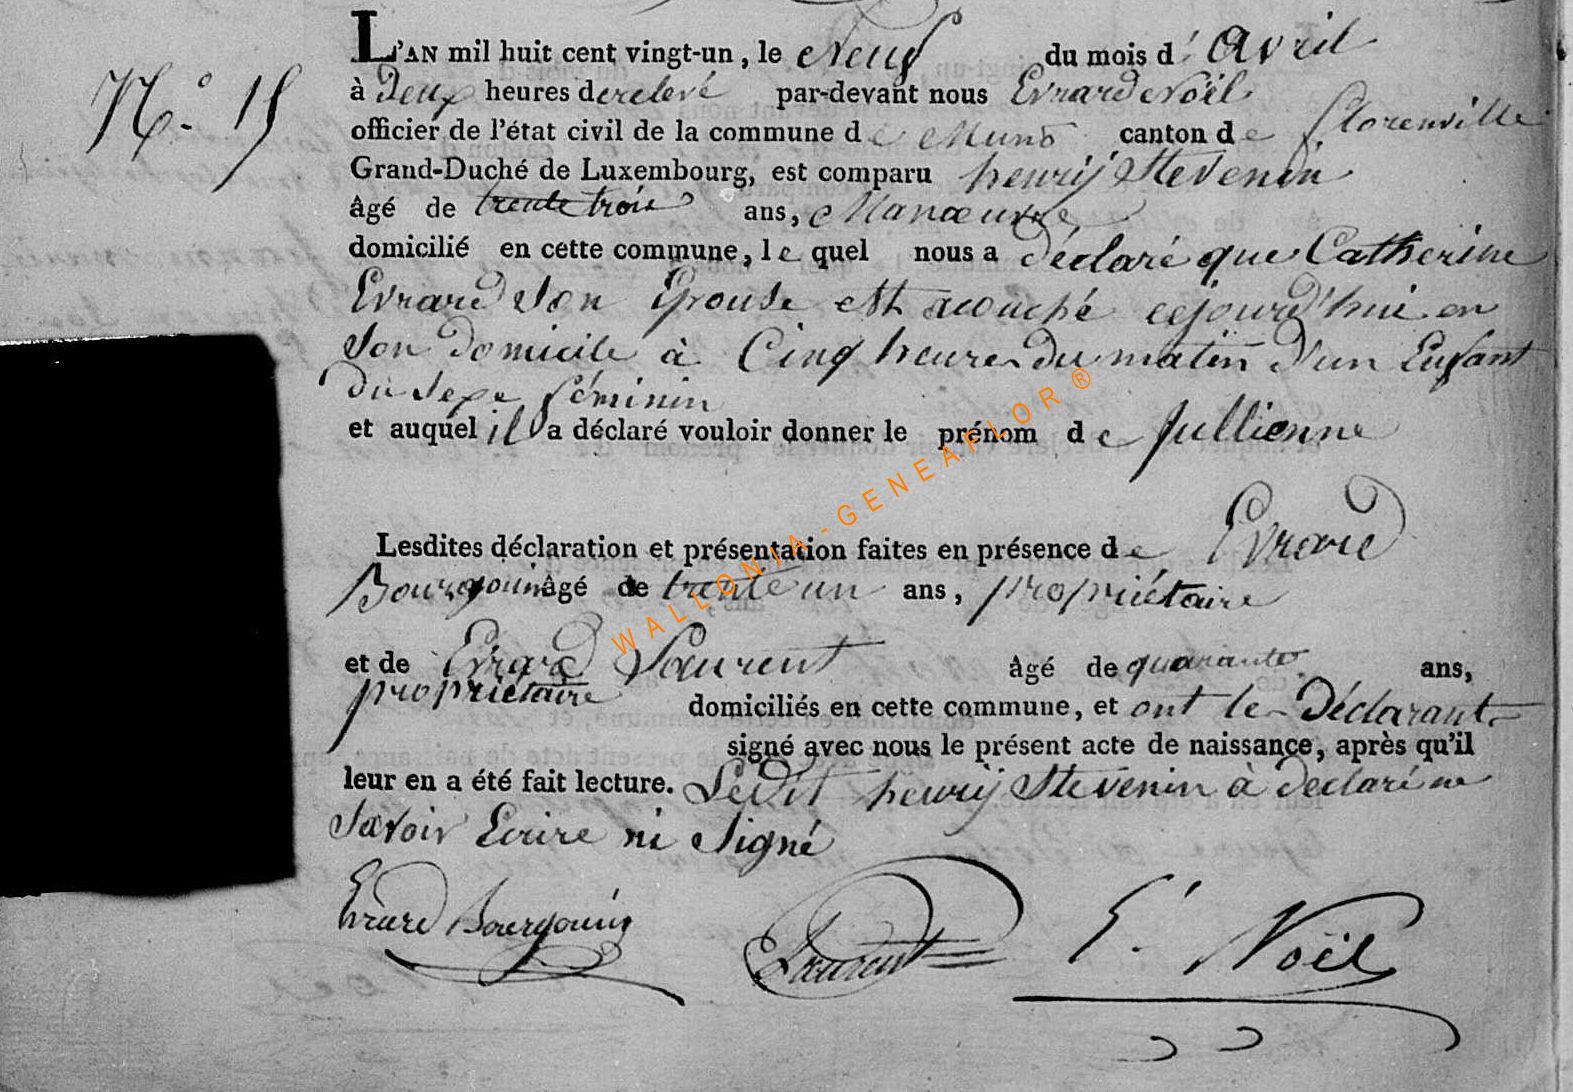 L'AN mil huit cent vingt-un, le Neuf du mois d' Avril
N.° 15
à Deux heures de relevé par-devant nous Evrard Noël
officier de l'état civil de la commune de Muno canton de Florenville
Grand-Duché de Luxembourg, est comparu henrij Stevenin
âgé de trente trois ans, Manœuvre
domicilié en cette commune, le quel nous a déclaré que Catherine
Evrard Son Epouse est acouché cejourd'hui en
Son Domicile à Cinq heures du matin D'un Enfant
Du Sexe féminin
et auquel il a déclaré vouloir donner le prénom de Jullienne
Lesdites déclaration et présentation faites en présence de Evrard
Bourgouin âgé de trente un ans, propriétaire
et de Evrard Laurent âgé de quarante ans,
propriétaire domiciliés en cette commune, et ont le Déclarant
signé avec nous le présent acte de naissance, après qu'il
leur en a été fait lecture. Ledit henrij Stevenin à declaré ne
Savoir Ecrire ni Signé
Evrard Bourgouin Laurent E. Noël
WALLONIA-GENEAFLOR®